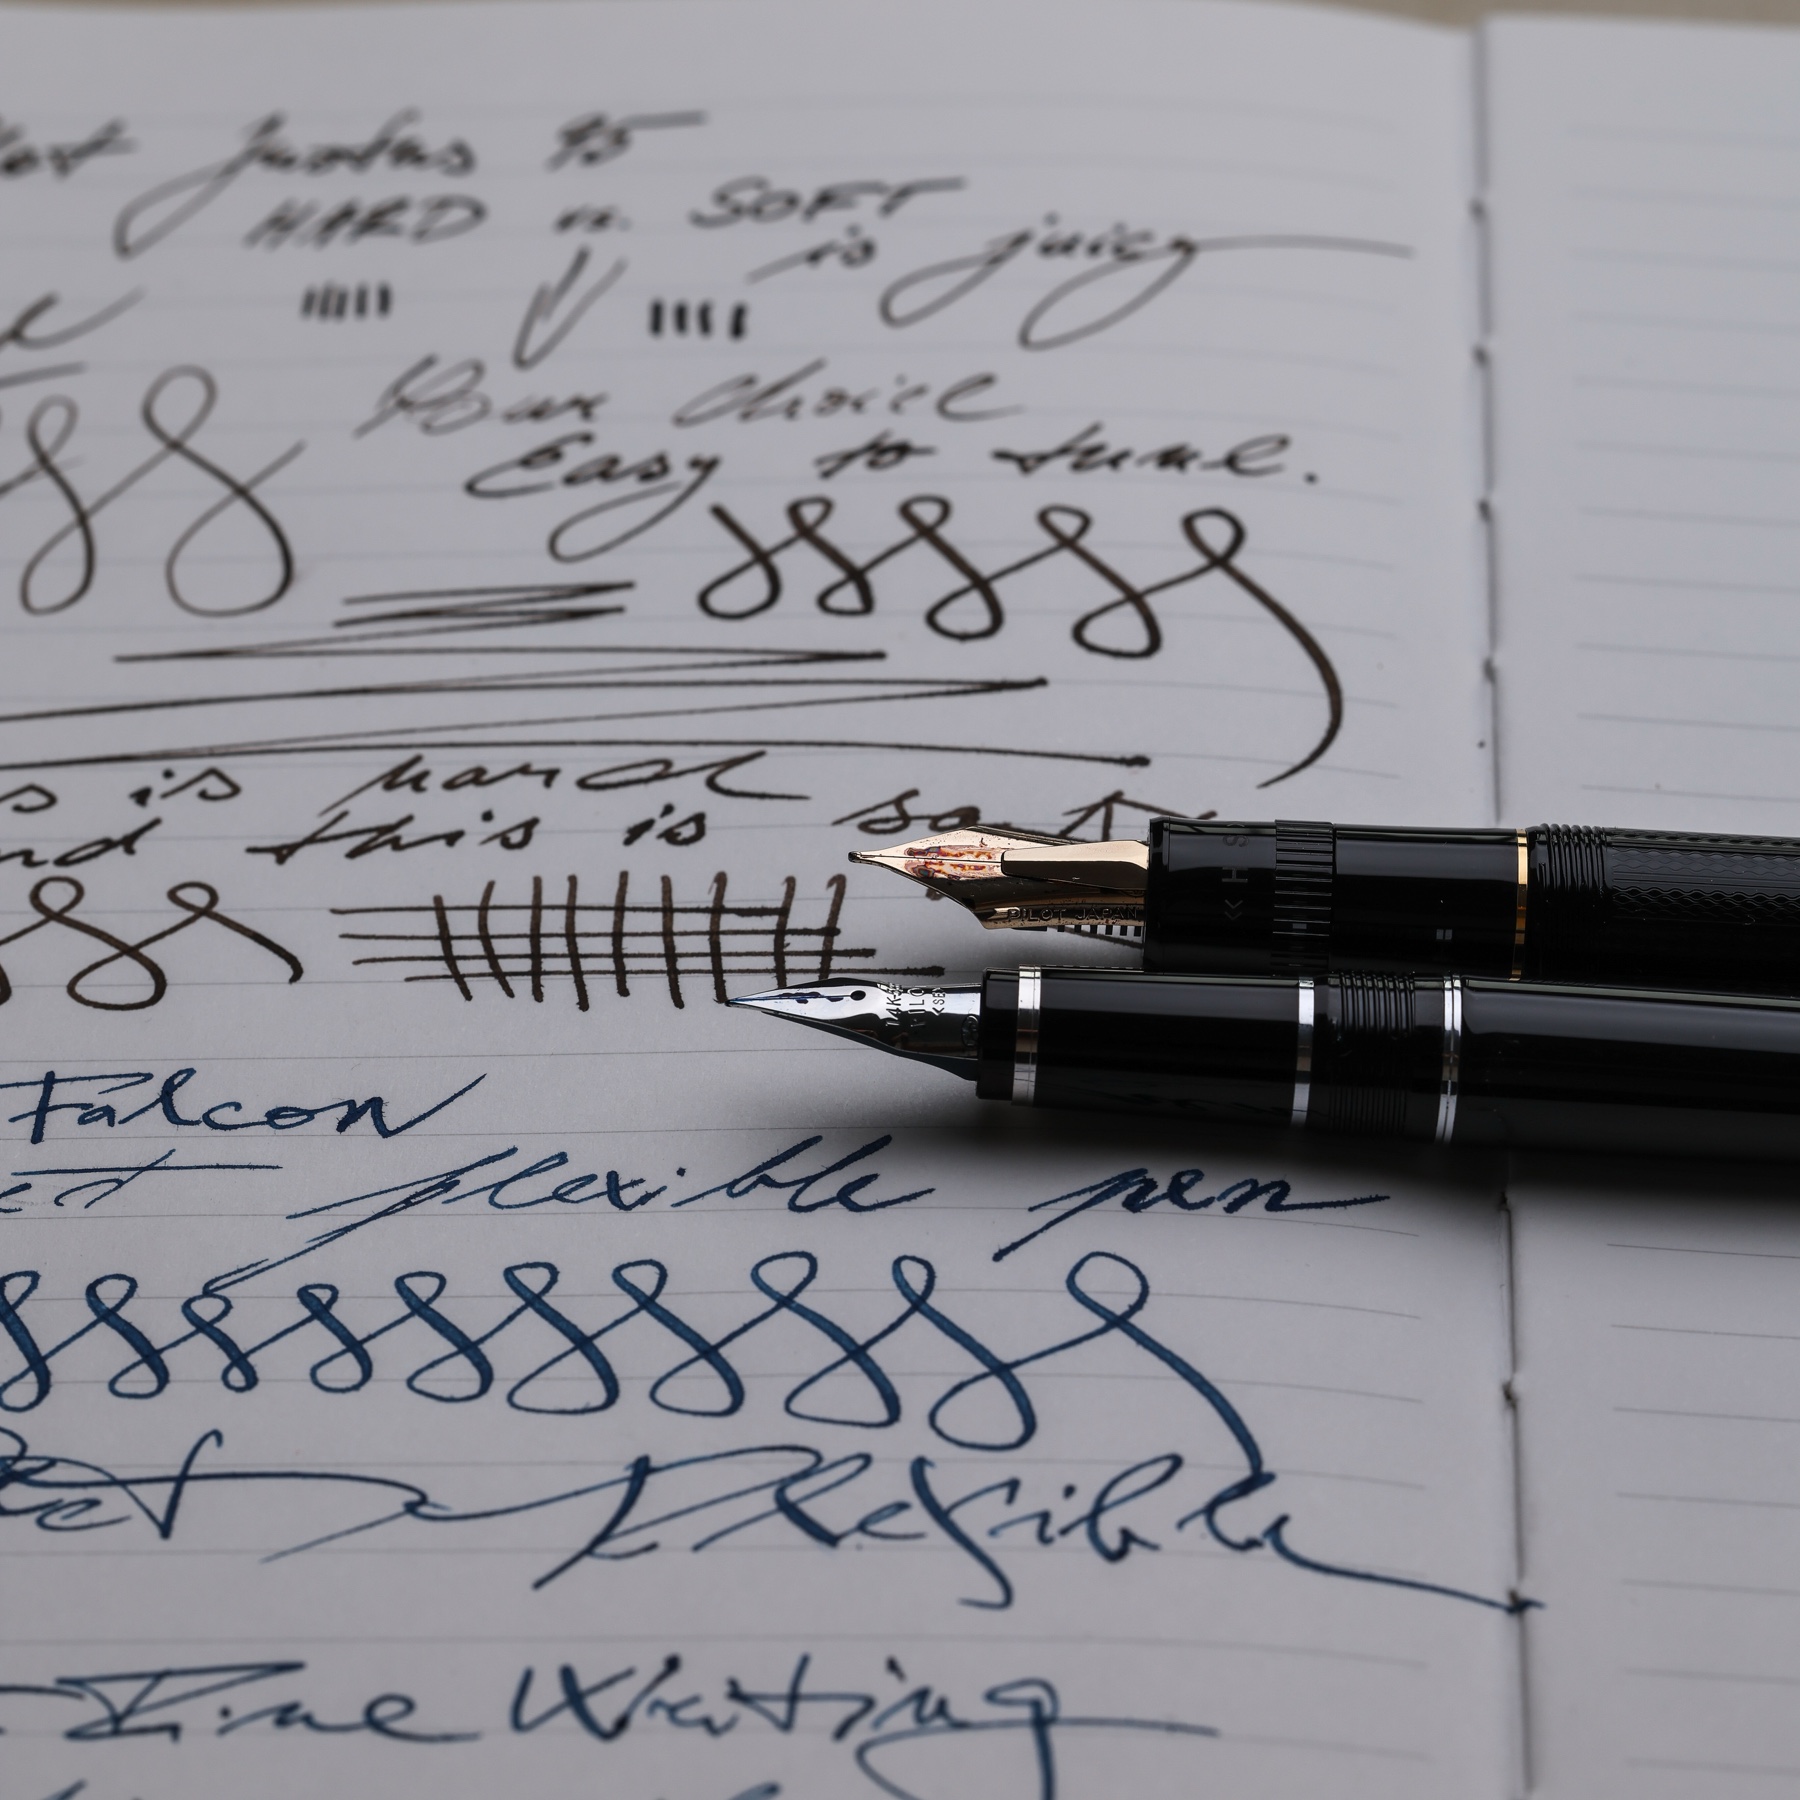 Justus 95
HARD vs. SOFT
is juicy
Your choice
Easy to tune.
is hard
this is so
PILOT JAPAN
H S
14K
PILO
Falcon
flexible pen
Flexible
Fine Writing